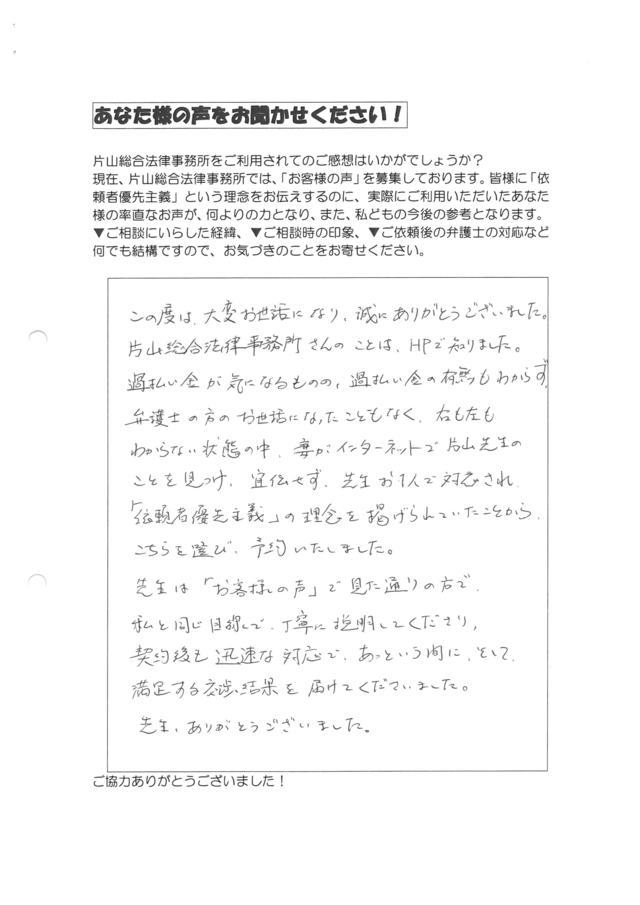 あなた様の声をお聞かせください！
片山総合法律事務所をご利用されてのご感想はいかがでしょうか？
現在、片山総合法律事務所では、「お客様の声」を募集しております。皆様に「依
頼者優先主義」という理念をお伝えするのに、実際にご利用いただいたあなた
様の率直なお声が、何よりの力となり、また、私どもの今後の参考となります。
▼ご相談にいらした経緯、▼ご相談時の印象、▼ご依頼後の弁護士の対応など
何でも結構ですので、お気づきのことをお寄せください。
この度は、大変お世話になり、誠にありがとうございました。
片山総合法律事務所さんのことは、HPで知りました。
過払い金が気になるものの、過払い金の有無もわからず
弁護士の方のお世話になったこともなく、右も左も
わからない状態の中、妻がインターネットで片山先生の
ことを見つけ、宣伝せず、先生お1人で対応され、
「依頼者優先主義」の理念を掲げられていたことから、
こちらを選び、予約いたしました。
先生は「お客様の声」で見た通りの方で、
私と同じ目線で、丁寧に説明してくださり、
契約後も迅速な対応で、あっという間に、そして、
満足する交渉結果を届けてくださいました。
先生、ありがとうございました。
ご協力ありがとうございました！